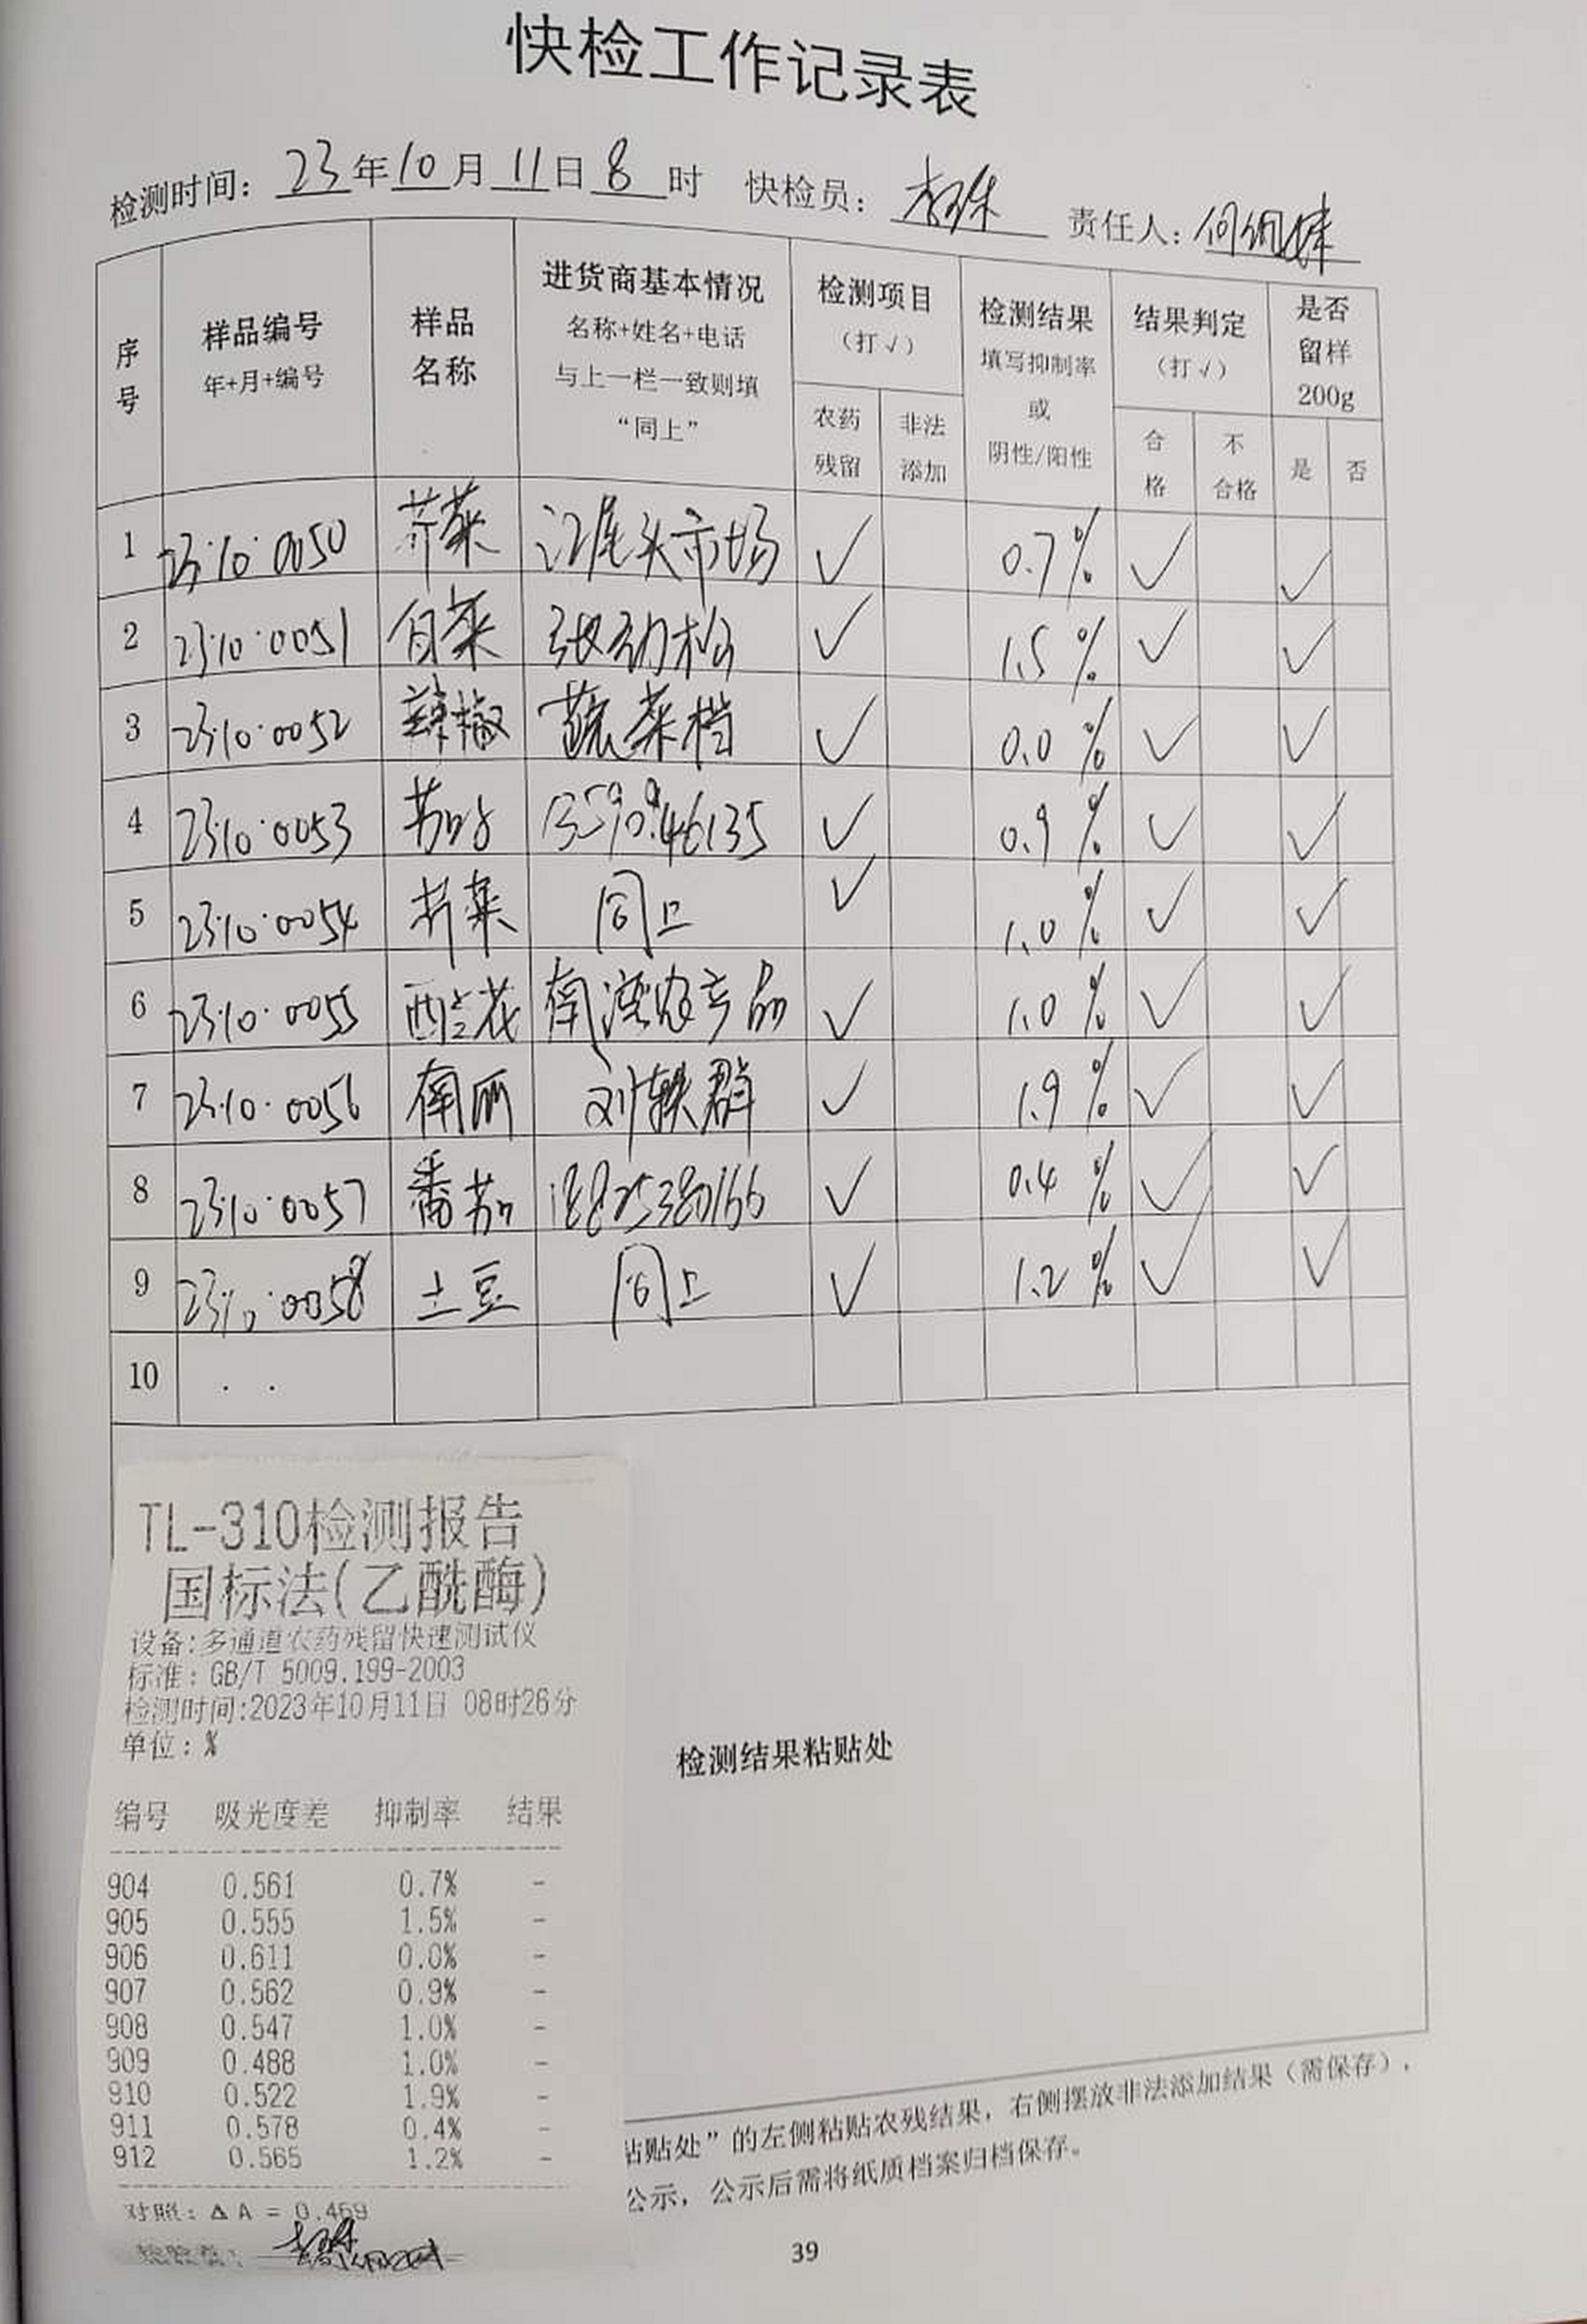 快检工作记录表
检测时间：23年10月11日8时 快检员： 责任人：
序号 样品编号 年+月+编号 样品名称 进货商基本情况 名称+姓名+电话 与上一栏一致则填“同上” 检测项目（打√） 农药残留 非法添加 检测结果 填写抑制率或阴性/阳性 结果判定（打√） 合格 不合格 是否留样200g 是 否
1 23·10·0050 芥菜 江尾头市场 √ 0.7% √ √
2 23·10·0051 白菜 张劲松 √ 1.5% √ √
3 23·10·0052 辣椒 蔬菜档 √ 0.0% √ √
4 23·10·0053 茄子 √ 0.9% √ √
5 23·10·0054 芥菜 同上 √ 1.0% √ √
6 23·10·0055 西兰花 农产品 √ 1.0% √ √
7 23·10·0056 南瓜 刘轶群 √ 1.9% √ √
8 23·10·0057 番茄 18825380166 √ 0.4% √ √
9 23·10·0058 土豆 同上 √ 1.2% √ √
10 · ·
TL-310检测报告
国标法(乙酰酶)
设备:多通道农药残留快速测试仪
标准：GB/T 5009.199-2003
检测时间:2023年10月11日 08时26分
单位：%
检测结果粘贴处
编号 吸光度差 抑制率 结果
904 0.561 0.7% -
905 0.555 1.5% -
906 0.611 0.0% -
907 0.562 0.9% -
908 0.547 1.0% -
909 0.488 1.0% -
910 0.522 1.9% -
911 0.578 0.4% -
912 0.565 1.2% -
对照：ΔA = 0.469
粘贴处”的左侧粘贴农残结果，右侧摆放非法添加结果（需保存），
公示，公示后需将纸质档案归档保存。
39